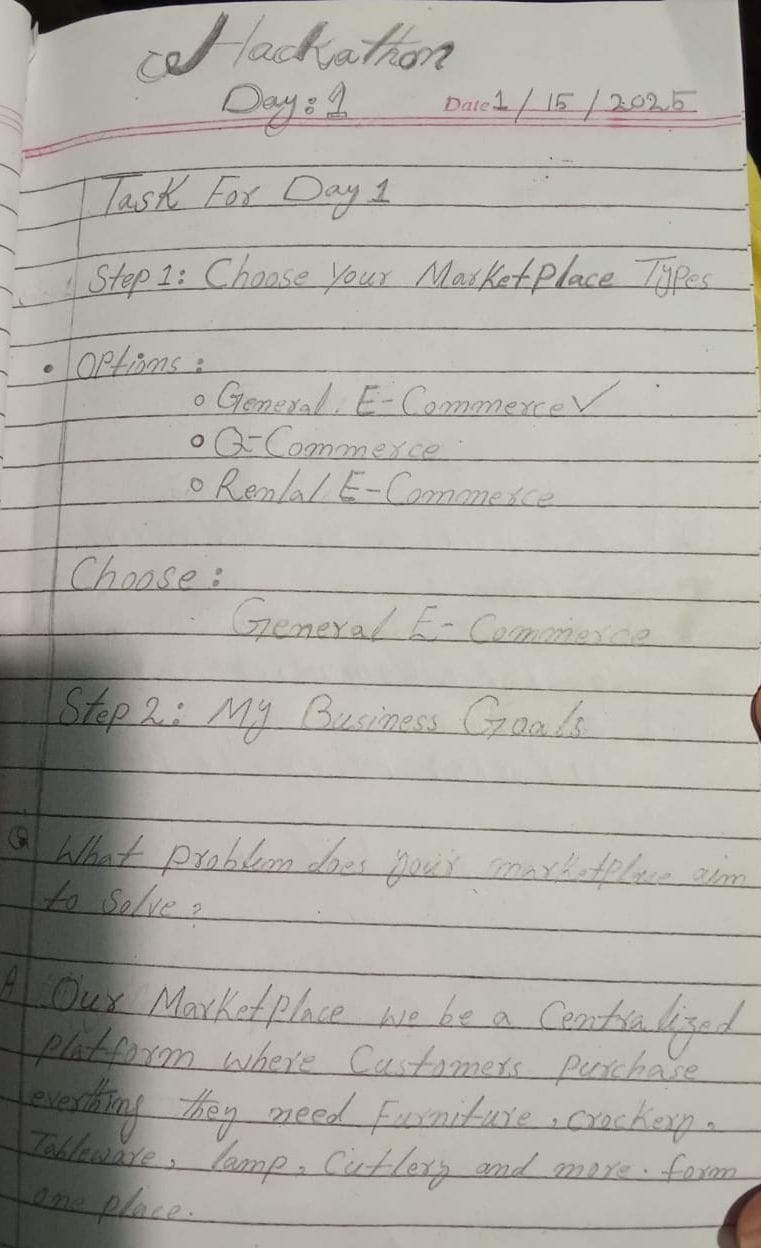 Hackathon
Day: 1 Date 1 / 15 / 2025
Task For Day 1
Step 1: Choose Your MarketPlace Types
• Options:
o General E-Commerce ✓
o Q-Commerce
o Rental E-Commerce
Choose:
General E-Commerce
Step 2: My Business Goals
Q What problem does your marketplace aim
to Solve?
A Our MarketPlace we be a Centralized
platform where Customers purchase
everthing they need Furniture, crockery,
Tableware, lamp, Cutlery and more. form
one place.